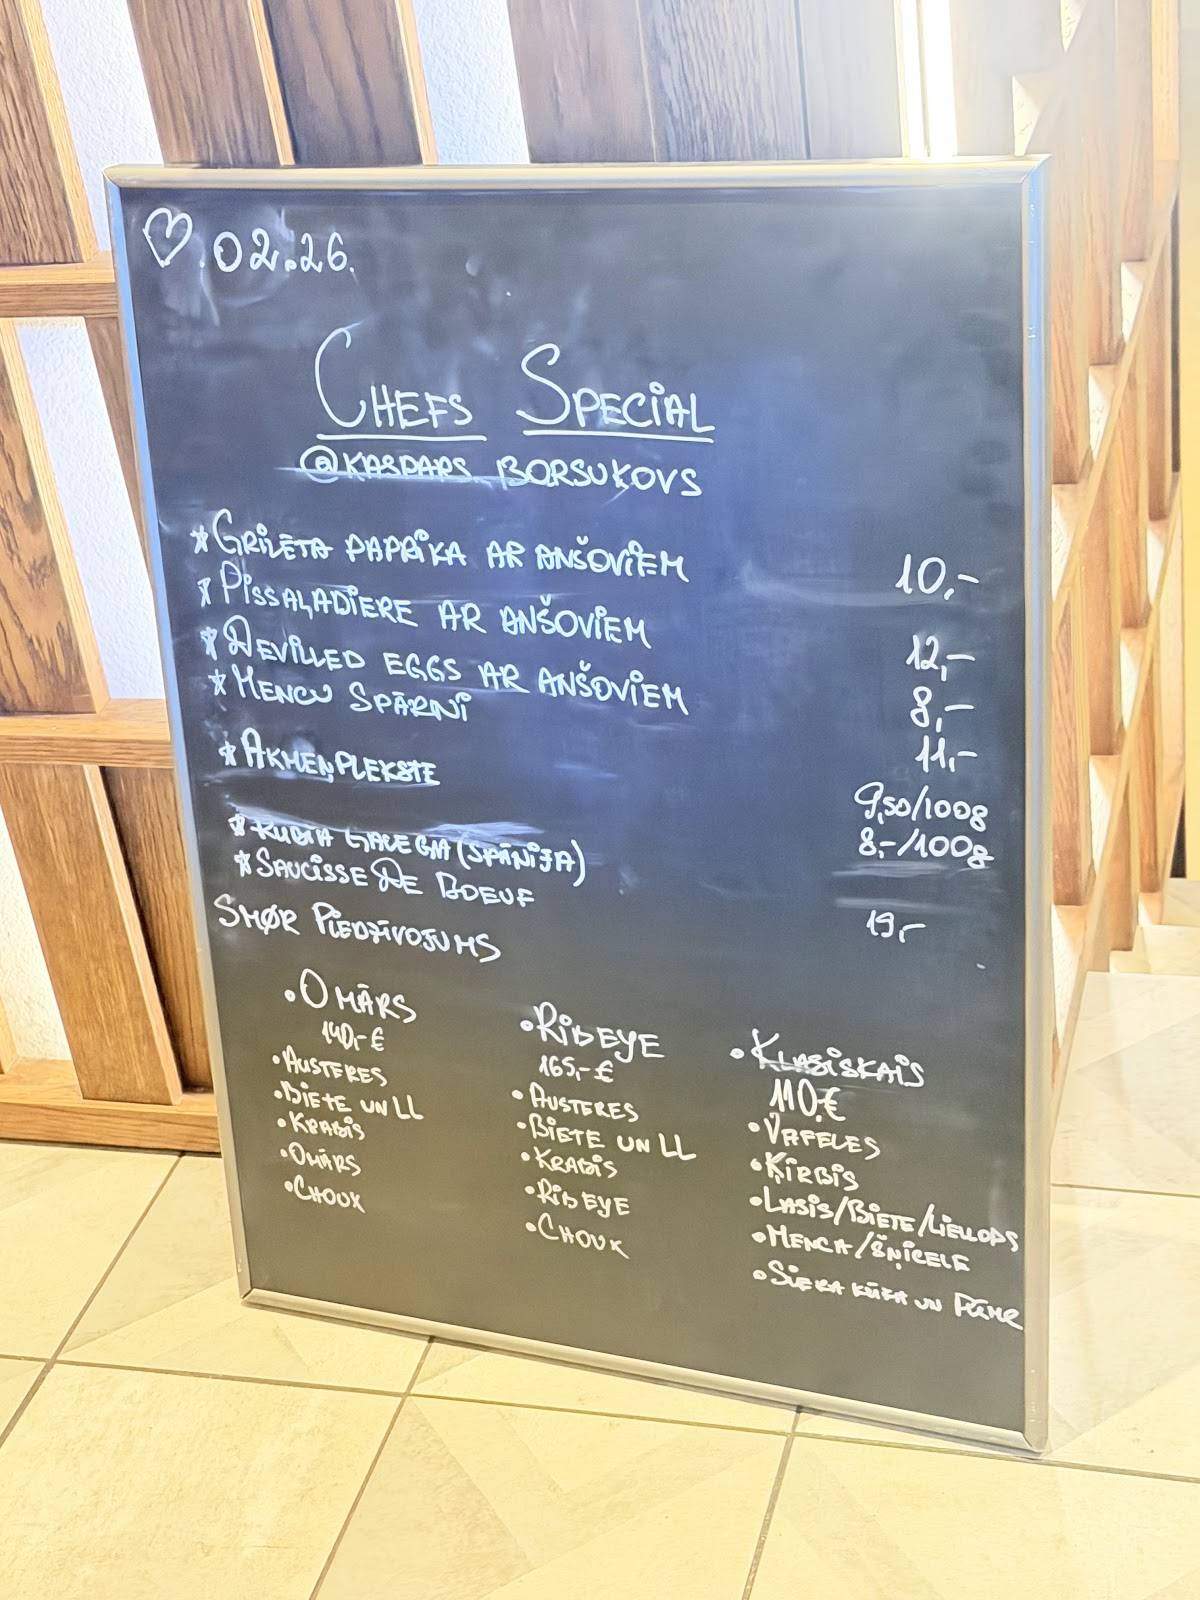 ♡.02.26.
CHEFS SPECIAL
@KASPARS BORSUKOVS
* GRILĒTA PAPRIKA AR ANŠOVIEM 10,-
* PISSAĻADIERE AR ANŠOVIEM 12,-
* DEVILLED EGGS AR ANŠOVIEM 8,-
* MENCU SPĀRNI 11,-
* AKMEŅPLEKSTE 9,50/100g
* RUBIA GALEGA (SPĀNIJA) 8,-/100g
* SAUCISSE DE BOEUF 19,-
SMØR PIEDZĪVOJUMS
• OMĀRS
140,-€
• AUSTERES
• BIETE UN LL
• KRABIS
• OMĀRS
• CHOUX
• RIBEYE
165,-€
• AUSTERES
• BIETE UN LL
• KRABIS
• RIBEYE
• CHOUX
• KLASISKAIS
110€
• VAFELES
• ĶIRBIS
• LASIS/BIETE/LIELLOPS
• MENCA/ŠŅICELE
• SIERA KŪKA UN